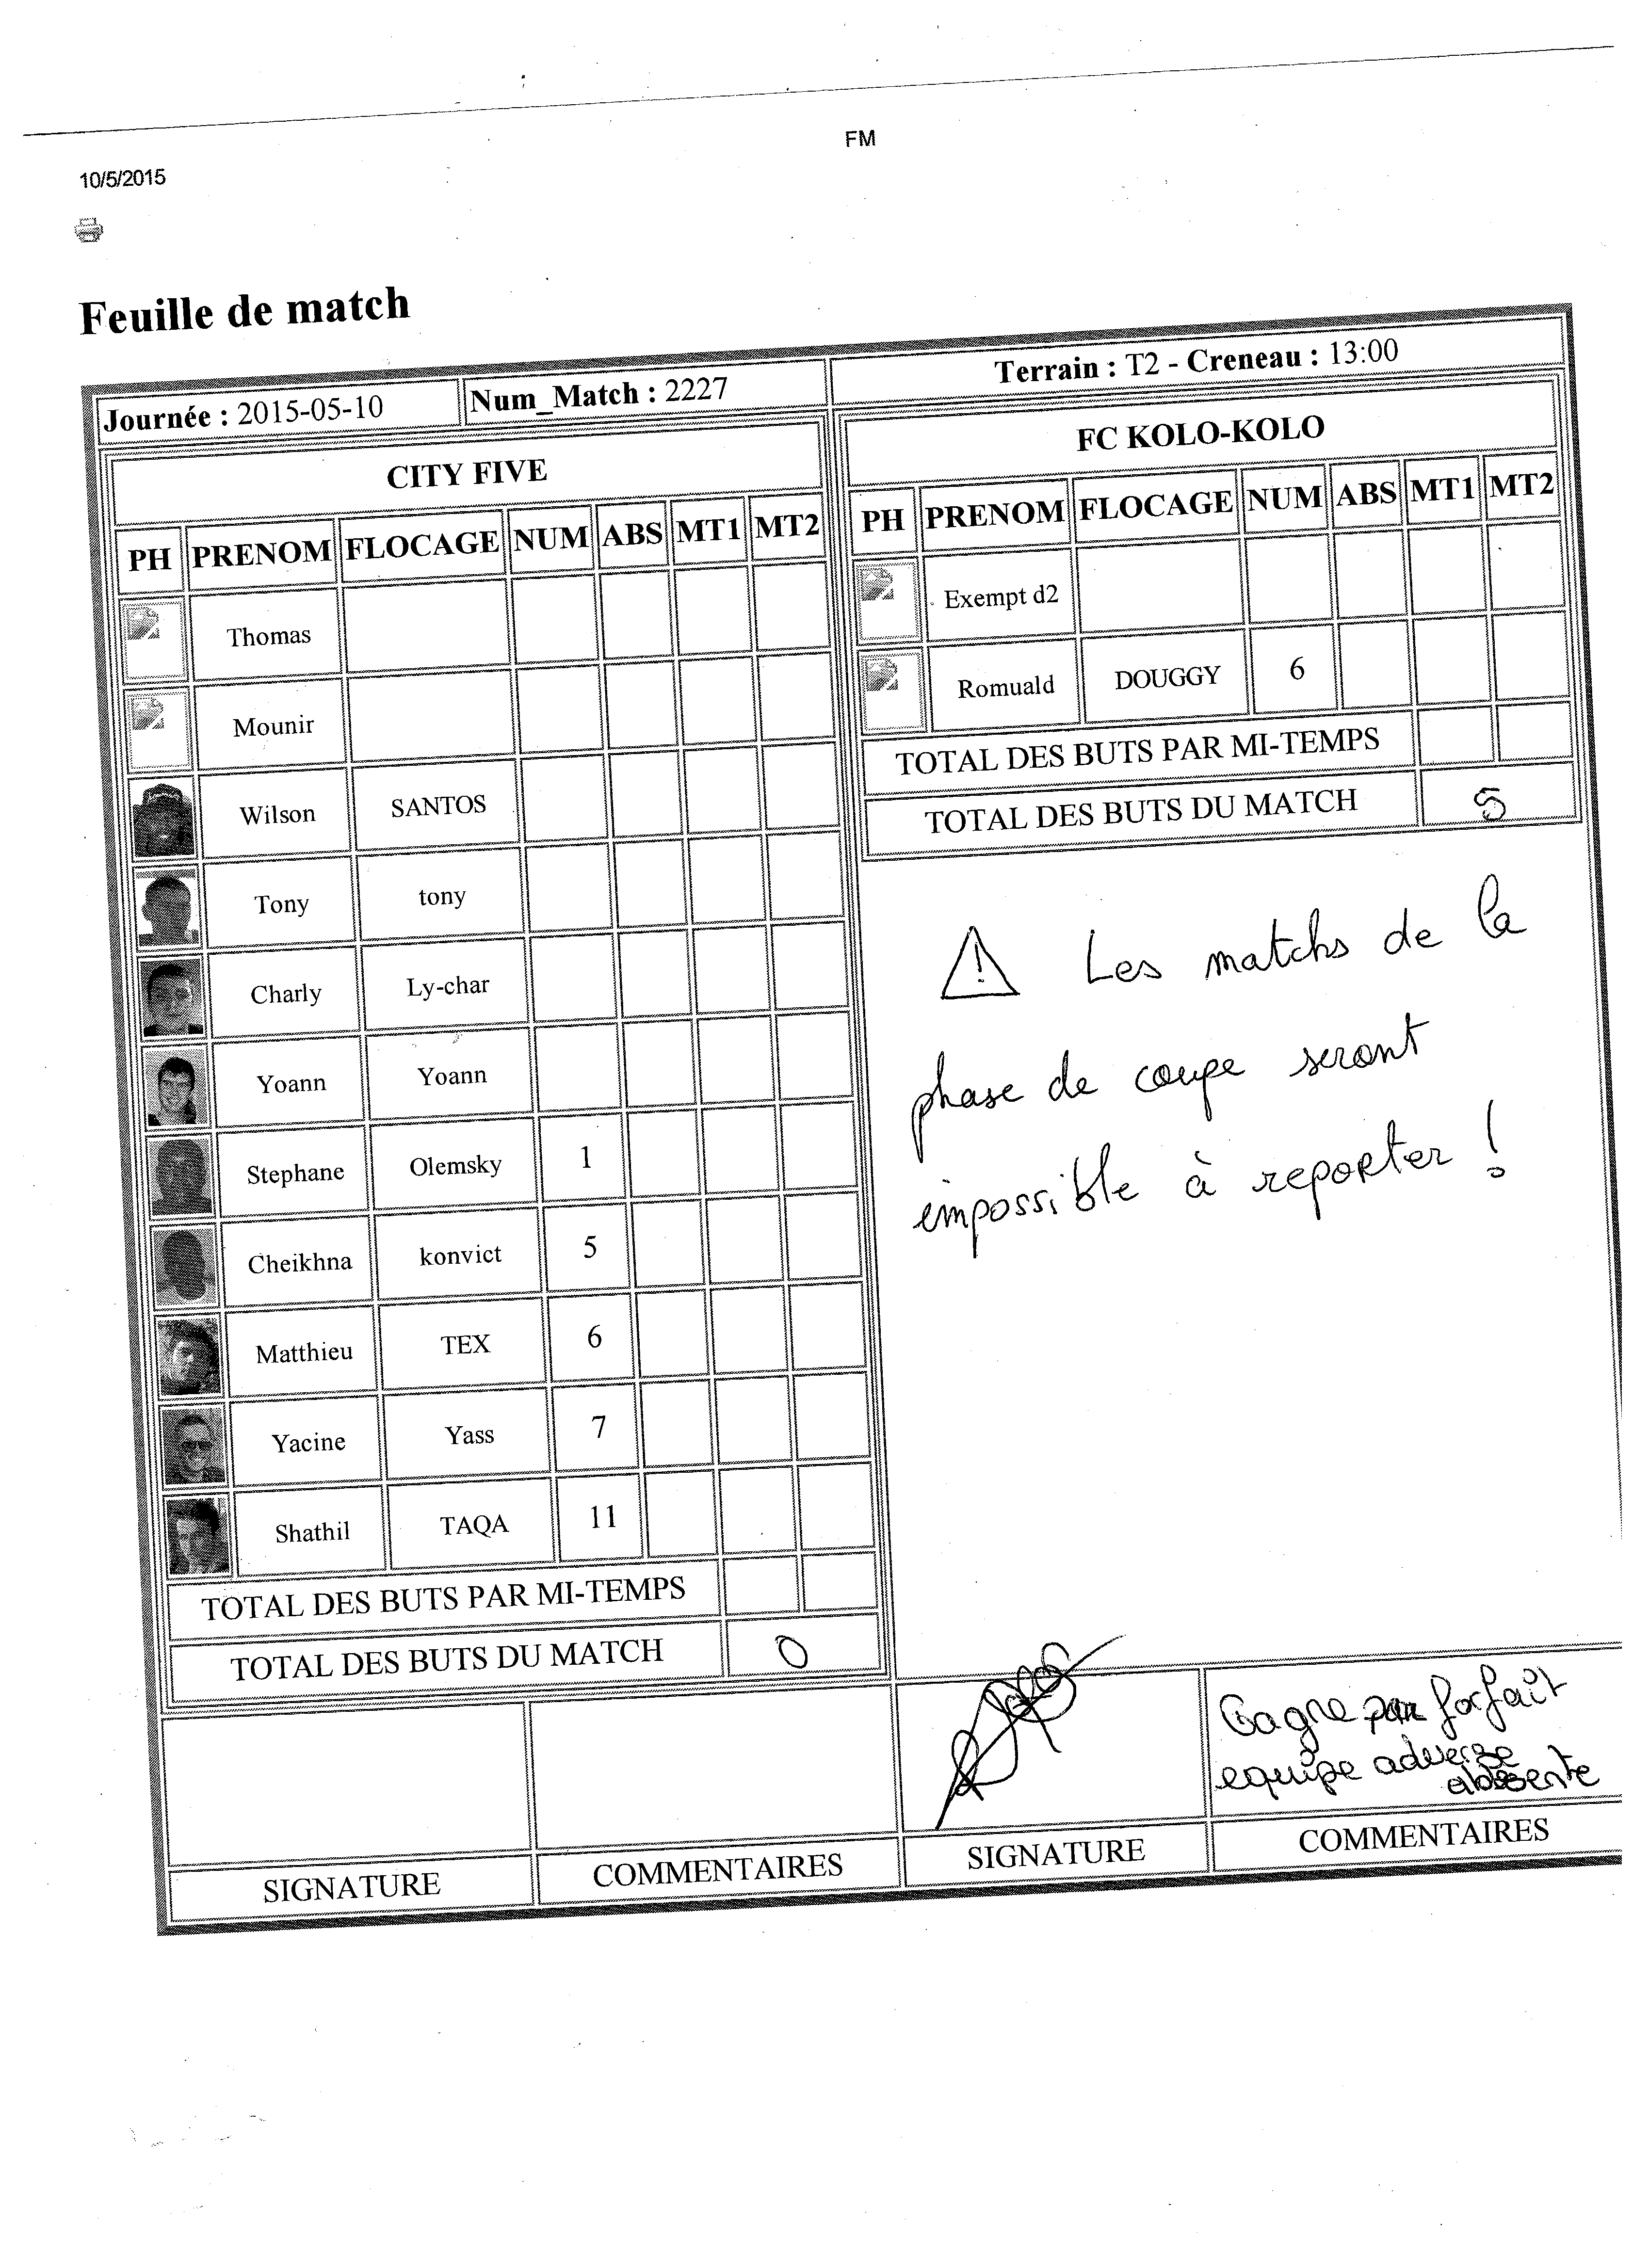 FM
10/5/2015
Feuille de match
Journée : 2015-05-10 Num_Match : 2227 Terrain : T2 - Creneau : 13:00
CITY FIVE
PH PRENOM FLOCAGE NUM ABS MT1 MT2
Thomas
Mounir
Wilson SANTOS
Tony tony
Charly Ly-char
Yoann Yoann
Stephane Olemsky 1
Cheikhna konvict 5
Matthieu TEX 6
Yacine Yass 7
Shathil TAQA 11
TOTAL DES BUTS PAR MI-TEMPS
TOTAL DES BUTS DU MATCH 0
FC KOLO-KOLO
PH PRENOM FLOCAGE NUM ABS MT1 MT2
Exempt d2
Romuald DOUGGY 6
TOTAL DES BUTS PAR MI-TEMPS
TOTAL DES BUTS DU MATCH 5
Les matchs de la
phase de coupe seront
impossible à reporter !
Gagne par forfait
equipe adverse
absente
SIGNATURE COMMENTAIRES SIGNATURE COMMENTAIRES